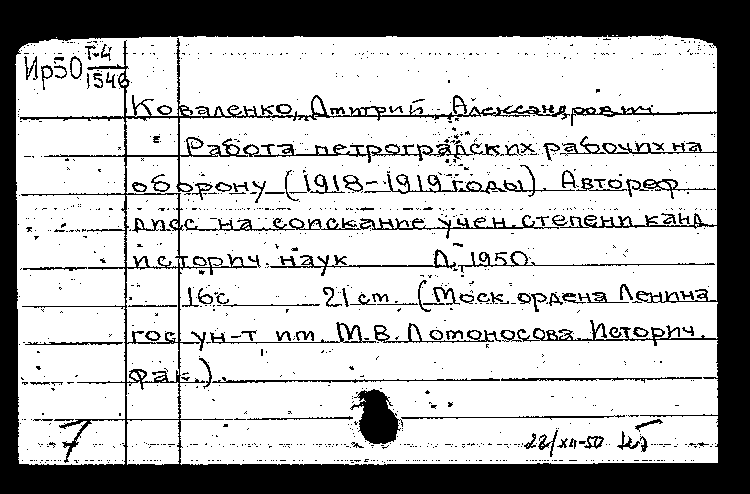 Ир50 Т-4
1546
Коваленко, Дмитрий Александрович
Работа петроградских рабочих на
оборону (1918-1919 годы). Автореф.
дисс. на соискание учен. степени канд.
историч. наук Л., 1950.
16с 21 ст. (Моск. ордена Ленина
гос. ун-т им. М.В. Ломоносова. Историч.
фак.).
7